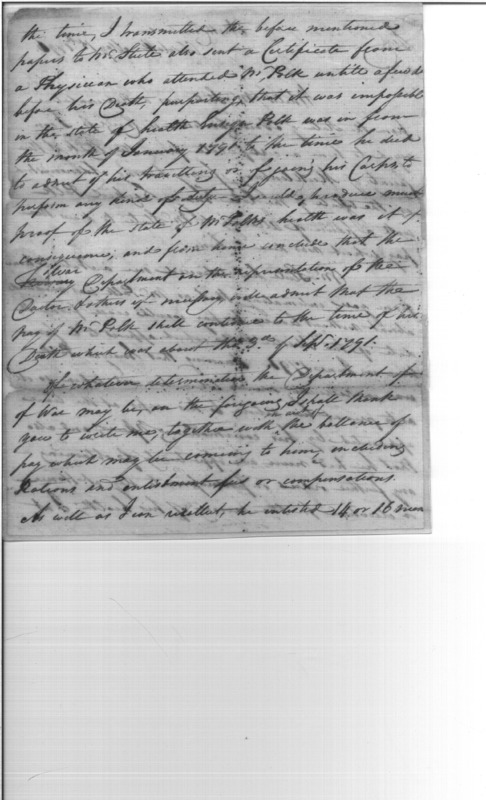 the time, I transmitted the before mentioned
papers to Mr. State also sent a Certificate from
a Physician who attended Mr. Polk untile a few ds
before his Death, purporting, that it was impossable
in the state of health Ensign Polk was in from
the month of January 1791 to the time he died
to admit of his travelling or joining his Corps, to
perform any kind of duty I could produce much
proof of the state of Mr. Polks health was it of
consequence, and from hence conclude that the
War
Department on the representation of the
Doctor & others if necessary will admit that the
pay of Mr. Polk shall continue to the time of his
Death which was about the 9th of Sept. 1791.
If whatever determination the Department
of War may be, on the forgoing I shall thank
you to write me, together with the ballance of
pay which may be coming to him, including
Rations and enlistment fees or compensations.
As well as I can recollect, he enlisted 14 or 16 men